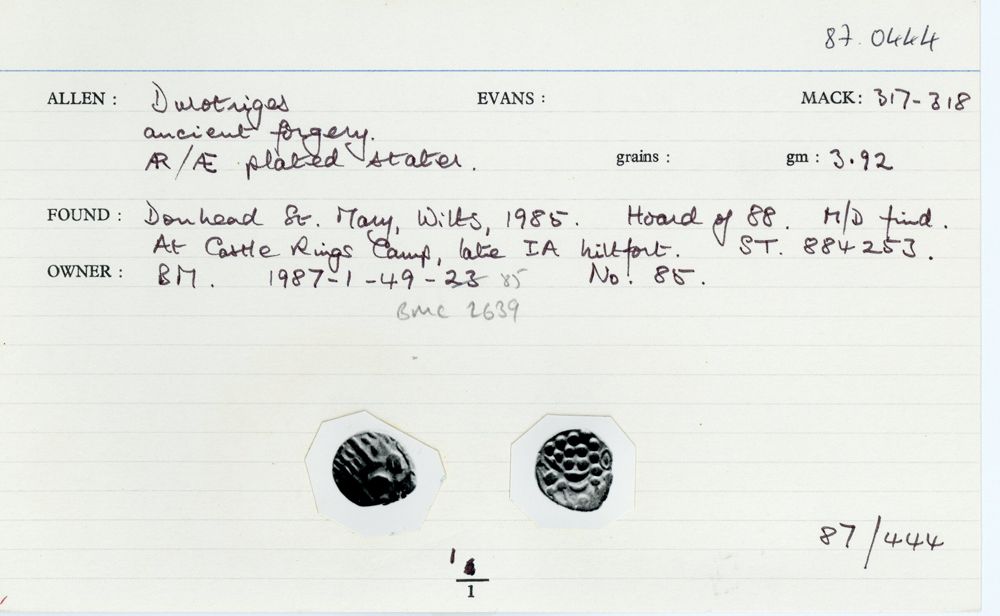 87.0444
ALLEN : Durotriges EVANS : MACK: 317-318
ancient forgery.
ÆR/Æ plated stater. grains : gm : 3.92
FOUND : Donhead St. Mary, Wilts, 1985. Hoard of 88. M/D find.
At Castle Rings Camp, late IA hillfort. ST. 884253.
OWNER : BM. 1987-1-49-23 85 No. 85.
BMC 2639
87/444
1
1